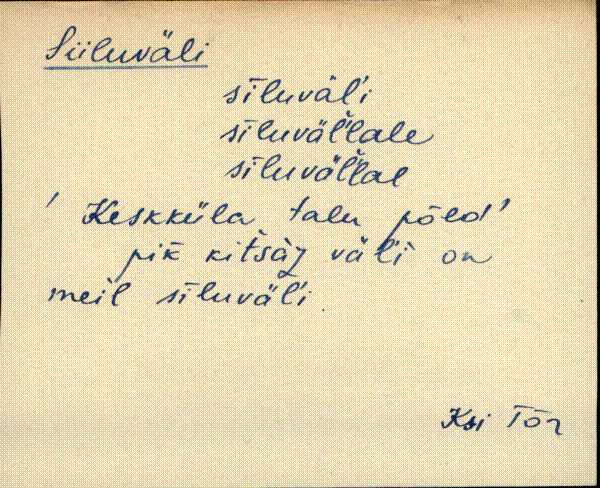 Siiluväli
sīluväl'i
sīluväl̆l̆ale
sīluväl̆l̆al
' Keskküla talu põld'
pik̄ kitsàᴢ väl'i on
meil sīluväl'i.
Ksi Tõr